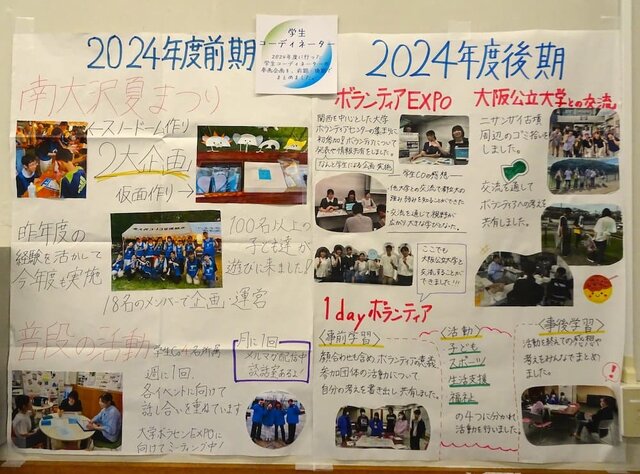 学生
コーディネーター
2024年度に行った
学生コーディネーターの
参画企画を、前期・後期で
まとめました。
2024年度前期
南大沢夏まつり
←スノードーム作り
2大企画
仮面作り→
昨年度の
経験を活かして
今年度も実施
100名以上の
子ども達が
遊びに来ました!!
18名のメンバーで企画・運営
普段の活動
週に1回、
各イベントに向けて
話し合いを重ねています
大学ボラセンEXPOに
向けてミーティング中!
月に1回
メルマガ配信中
談話室あるよ!
2024年度後期
ボランティアEXPO
関西を中心とした大学
ボランティアセンターの集まりに
初参加!ボランティアについて
発表や情報共有をしました。
なんと学生による企画・実施
学生COの感想
他大学との交流で都立大の
強み・弱みを知ることができた
交流を通して視野が
広がり大きな学びになった。
ここでも
大阪公立大学と
交流することが
できました!!!
大阪公立大学との交流
ニサンザイ古墳
周辺のゴミ拾いを
しました。
交流を通して
ボランティアへの考えを
共有しました。
1dayボランティア
〈事前学習〉
顔合わせも含め、ボランティアの意義
参加団体の活動について
自分の考えを書き出し共有しました。
〈活動〉
子ども
スポーツ
生活支援
福祉
の4つに分かれ
活動を行いました。
〈事後学習〉
活動を終えての感想や
考えをみんなでまとめ
ました。